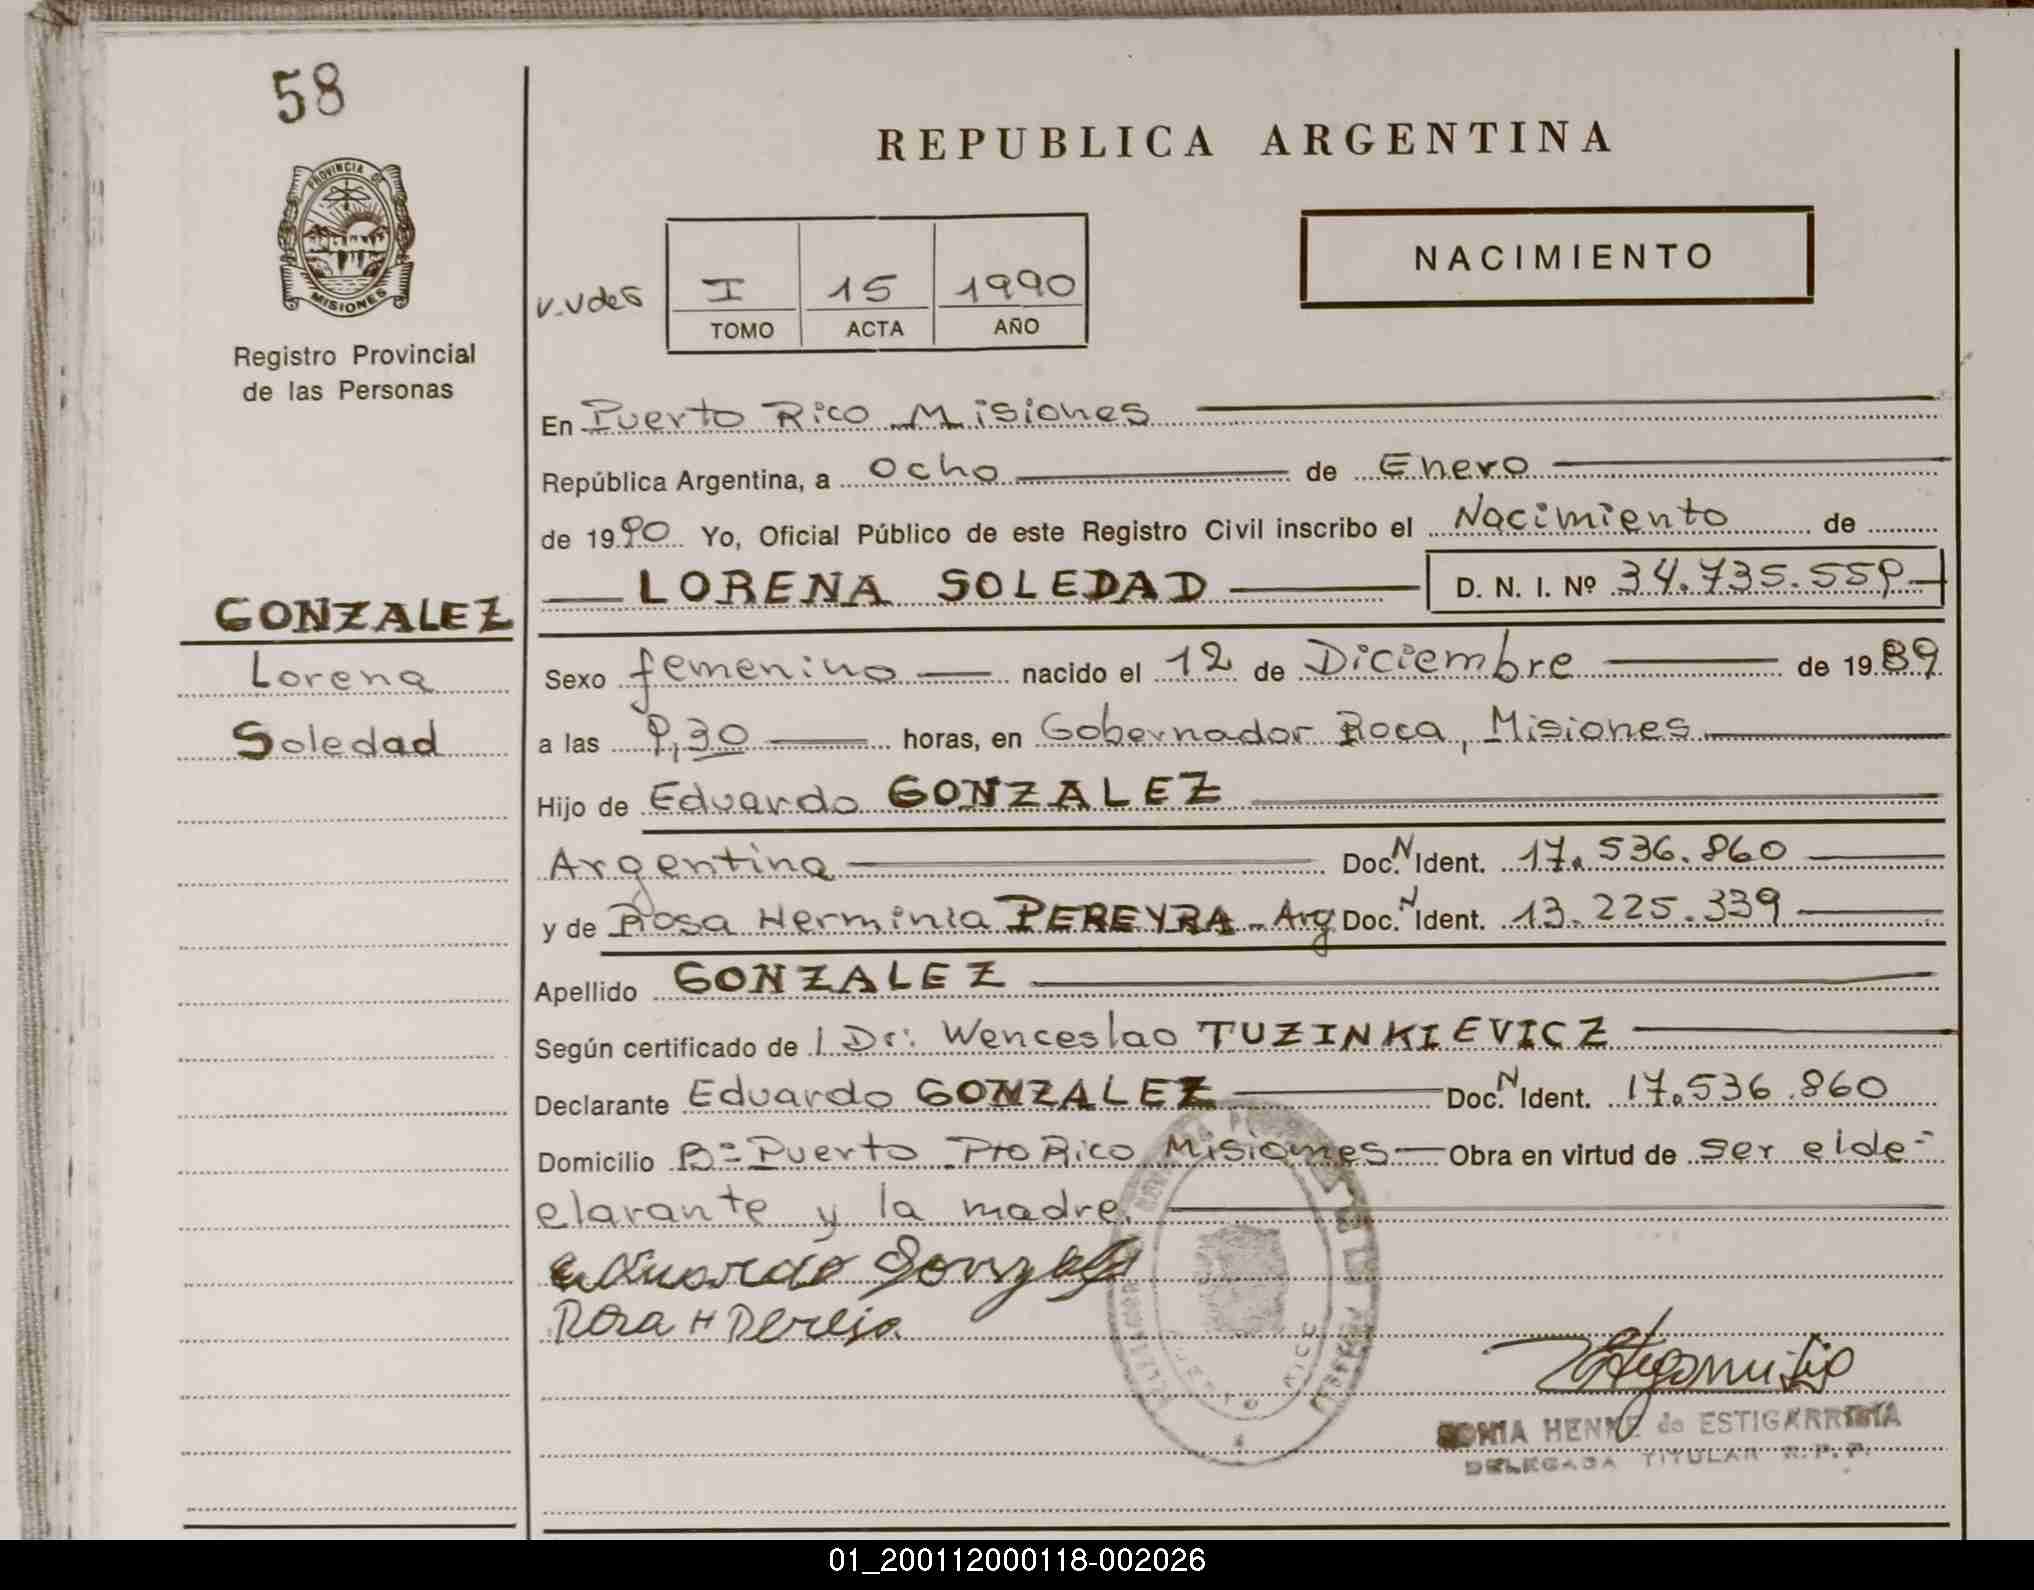 58
REPUBLICA ARGENTINA
PROVINCIA DE
MISIONES
Registro Provincial
de las Personas
V.Vdes
I 15 1990
TOMO ACTA AÑO
NACIMIENTO
En Puerto Rico Misiones
República Argentina, a ocho de Enero
de 1990 Yo, Oficial Público de este Registro Civil inscribo el Nacimiento de
LORENA SOLEDAD D. N. I. Nº 34.735.559
GONZALEZ
Lorena
Soledad
Sexo femenino nacido el 12 de Diciembre de 1989
a las 9,30 horas, en Gobernador Roca, Misiones
Hijo de Eduardo GONZALEZ
Argentina Doc. N Ident. 17.536.860
y de Rosa Herminia PEREYRA - Arg Doc. N Ident. 13.225.339
Apellido GONZALEZ
Según certificado de l Dr: Wenceslao TUZINKIEVICZ
Declarante Eduardo GONZALEZ Doc. N Ident. 17.536.860
Domicilio Bº Puerto Pto Rico Misiones Obra en virtud de ser el de-
clarante y la madre.
Eduardo Gonzalez
Rosa H Pereira
PUERTO RICO
SONIA HENNE de ESTIGARRIBIA
DELEGADA TITULAR R.P.P.
01_200112000118-002026